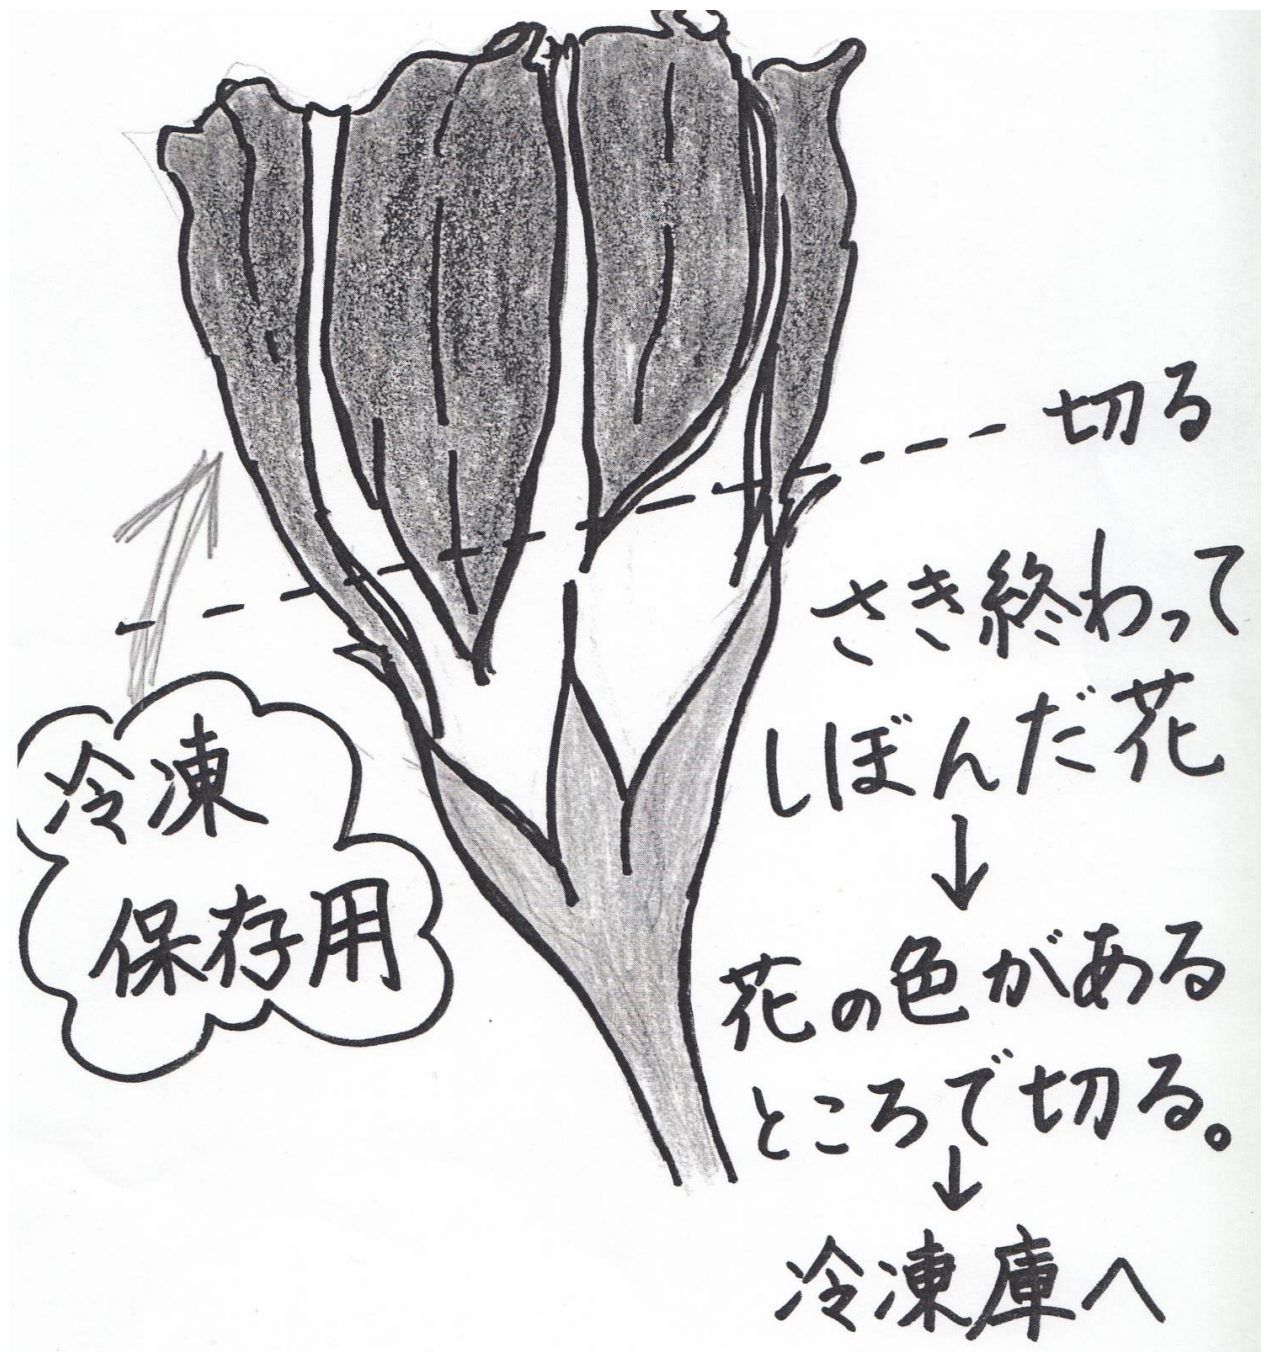 切る
さき終わって
しぼんだ花
↓
花の色がある
ところで切る。
↓
冷凍庫へ
冷凍
保存用